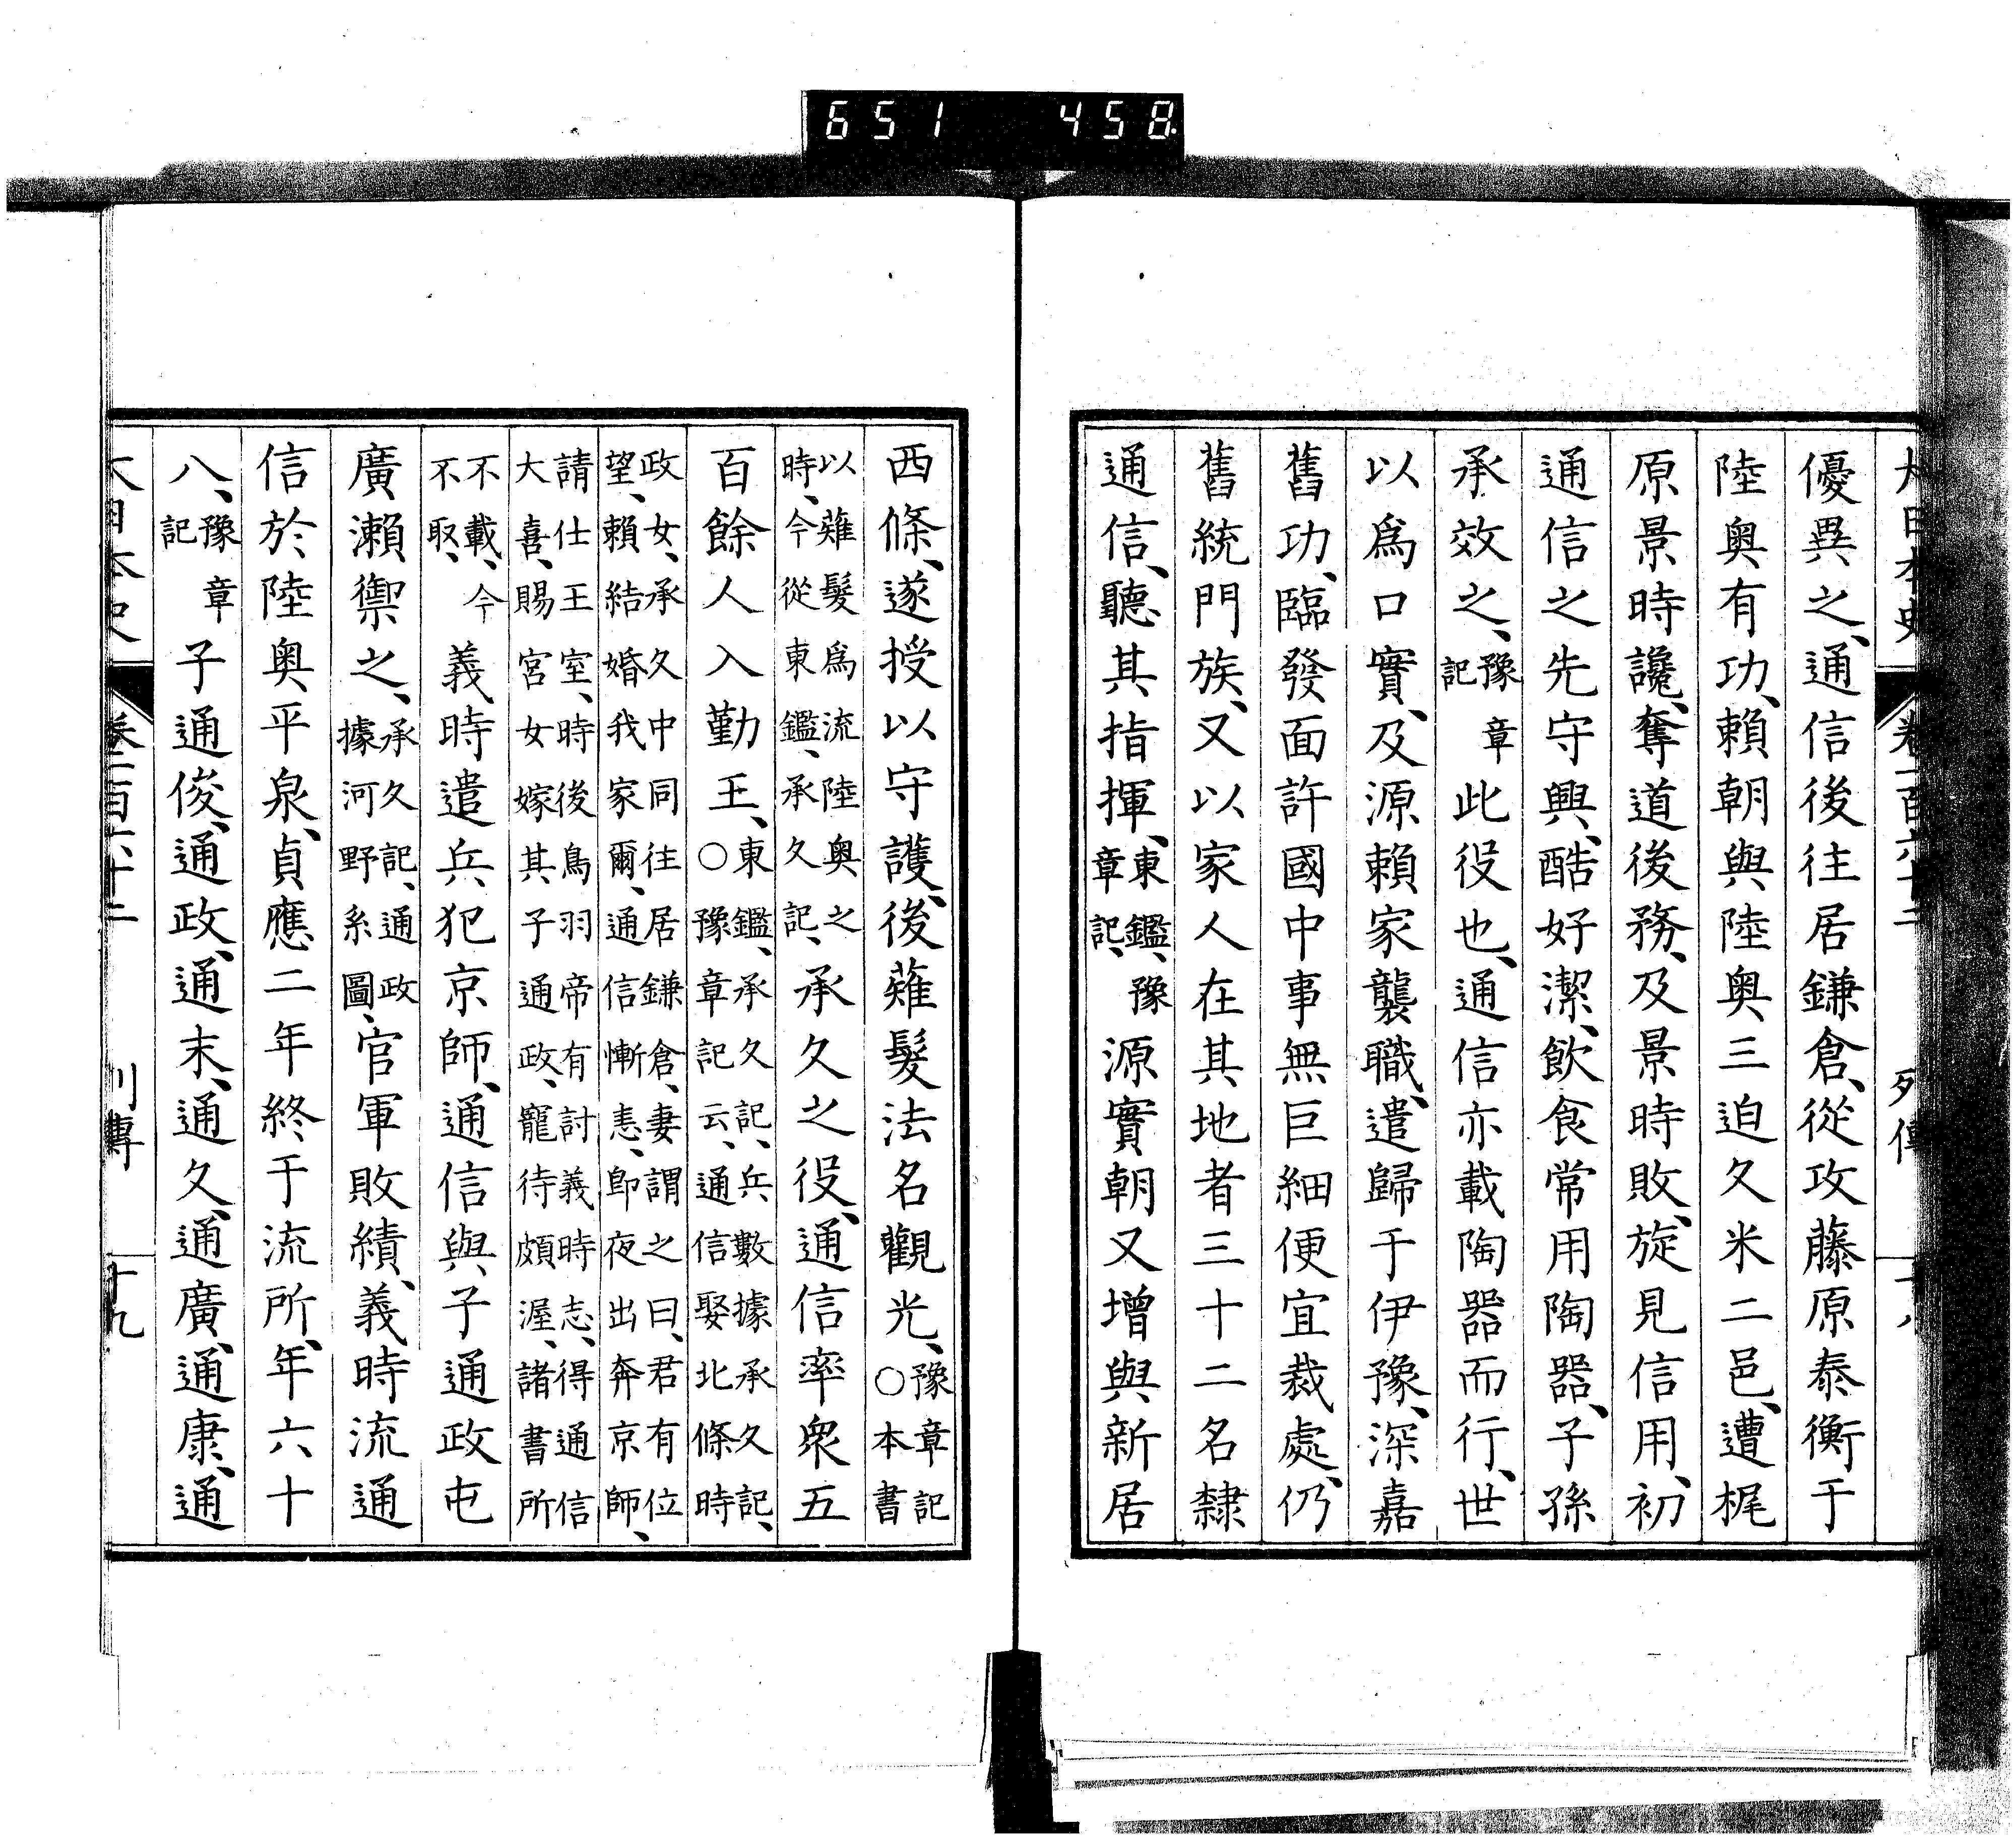 651 458
大日本史 卷一百六十二 列傳 十八
優異之、通信後往居鎌倉、從攻藤原泰衡于
陸奥有功、賴朝與陸奥三迫久米二邑、遭梶
原景時讒、奪道後務、及景時敗、旋見信用、初
通信之先守興、酷好潔、飲食常用陶器、子孫
承效之、豫章記此役也、通信亦載陶器而行、世
以爲口實、及源賴家襲職、遣歸于伊豫、深嘉
舊功、臨發面許國中事無巨細便宜裁處、仍
舊統門族、又以家人在其地者三十二名隸
通信、聽其指揮、東鑑、豫章記、源實朝又增與新居
西條、遂授以守護、後薙髮法名觀光、豫章記○本書
以薙髮爲流陸奥之時、今從東鑑、承久記、承久之役、通信率衆五
百餘人入勤王、東鑑、承久記、兵數據承久記、○豫章記云、通信娶北條時
政女、承久中同往居鎌倉、妻謂之曰、君有位望、賴結婚我家爾、通信慚恚、卽夜出奔京師、
請仕王室、時後鳥羽帝有討義時志、得通信大喜、賜宮女嫁其子通政、寵待頗渥、諸書所
不載、今不取、義時遣兵犯京師、通信與子通政屯
廣瀨禦之、承久記、通政據河野系圖、官軍敗績、義時流通
信於陸奥平泉、貞應二年終于流所、年六十
八、豫章記子通俊、通政、通末、通久、通廣、通康、通
大日本史 卷一百六十二 列傳 十九